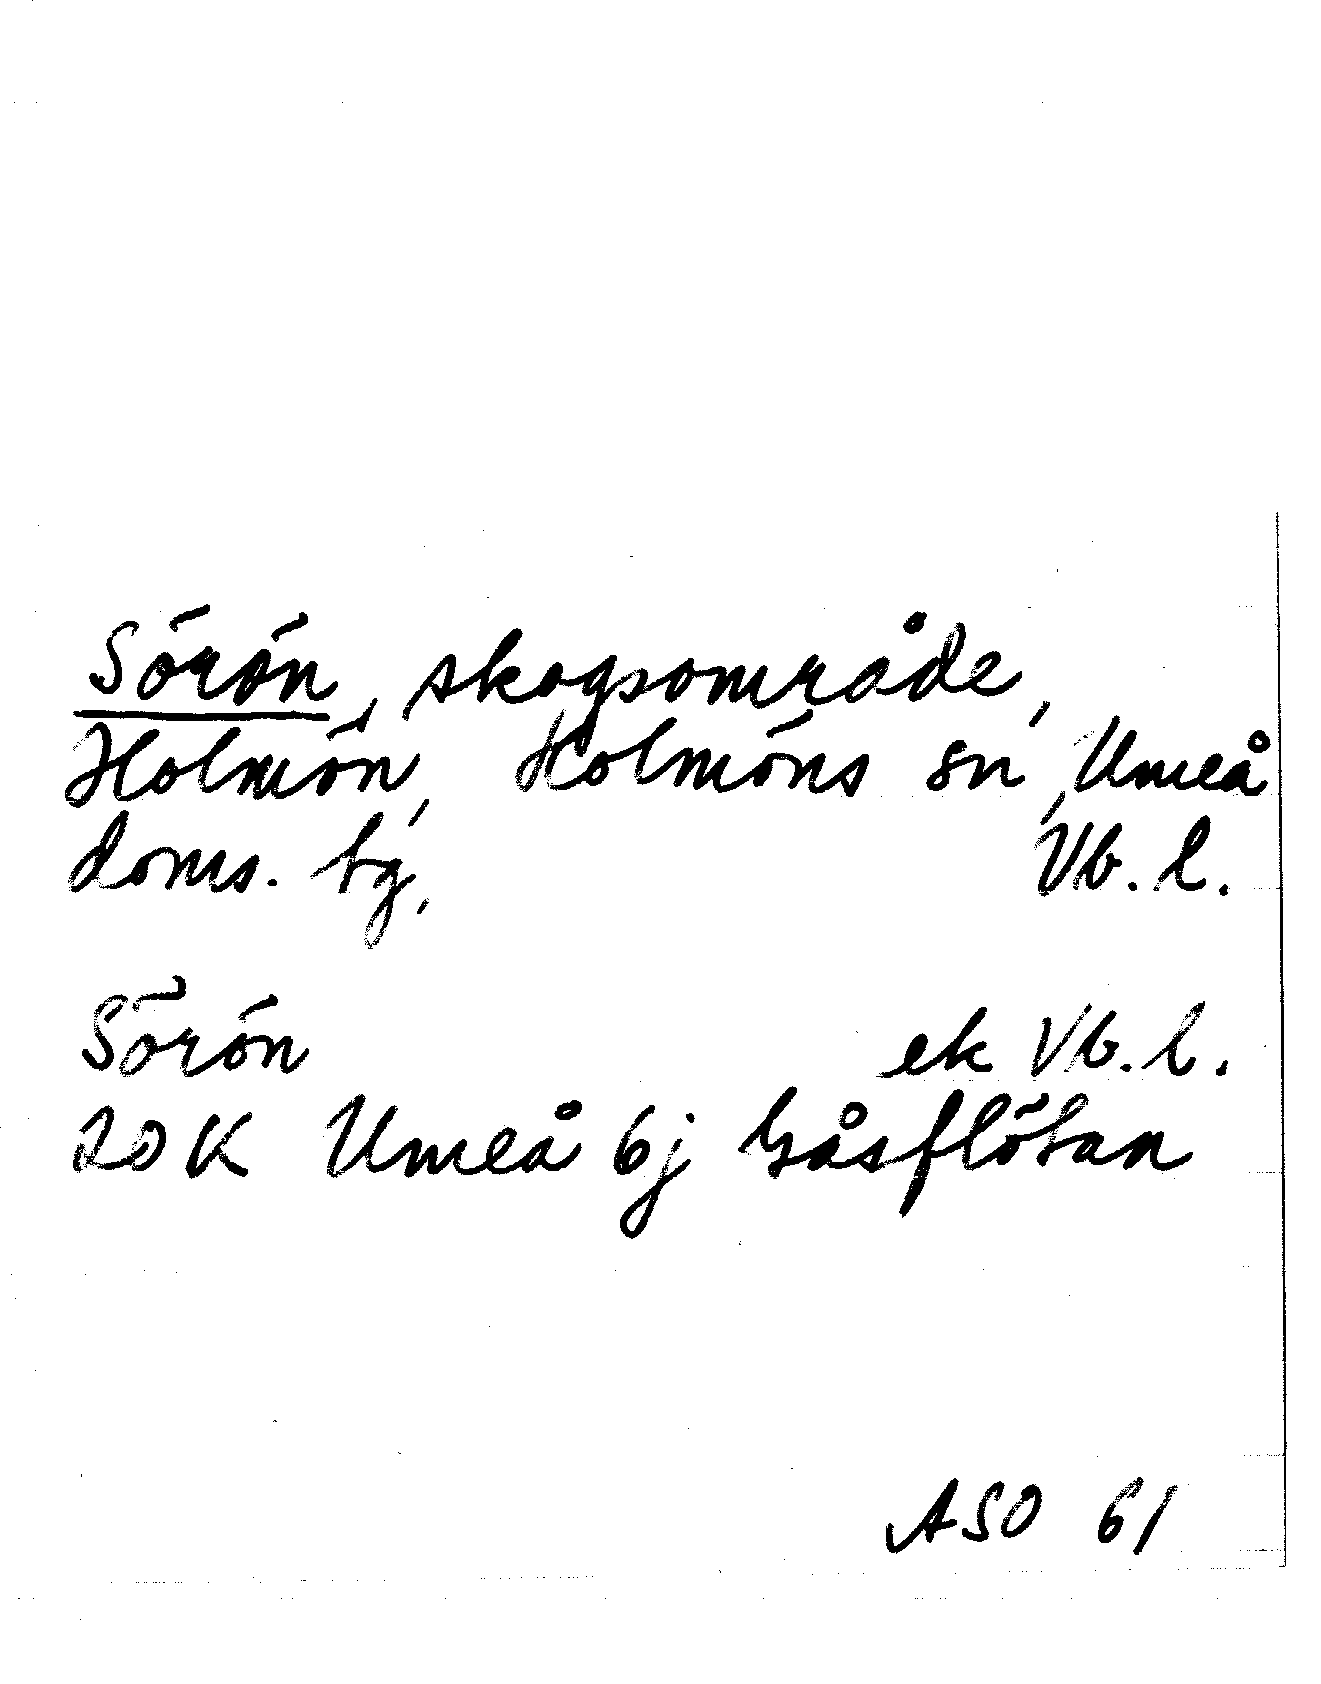 Sörön, skogsområde,
Holmön, Holmöns sn, Umeå
doms. tg, Vb. l.
Sörön ek Vb. l.
20 K Umeå 6j Gåsflötan
ASO 61